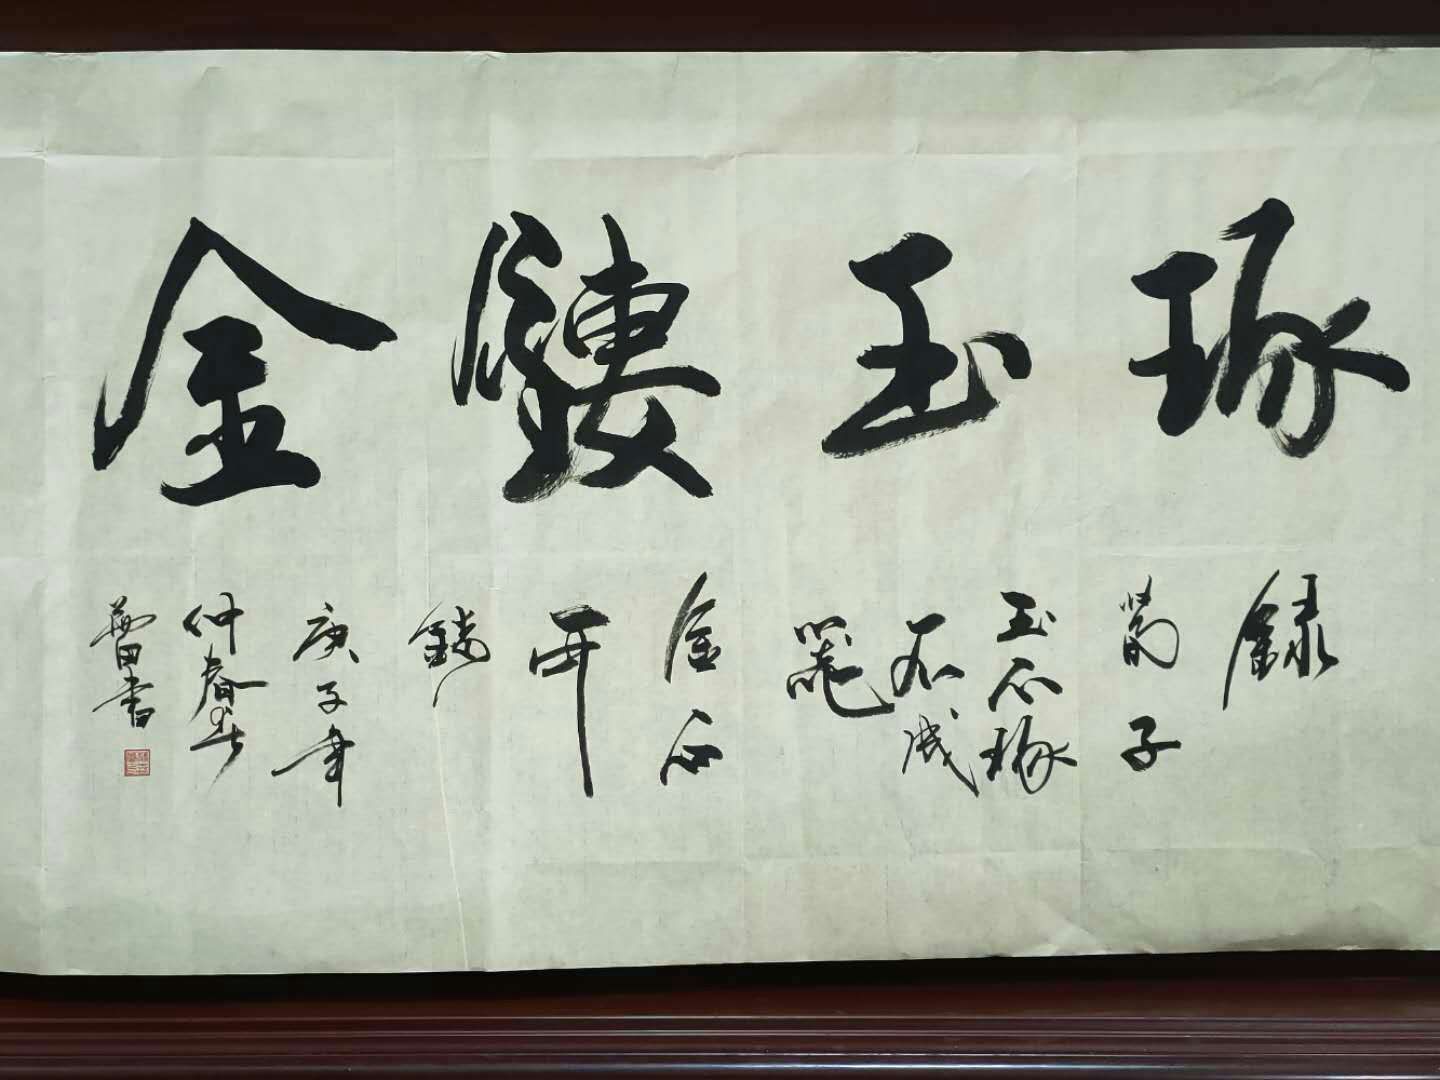 琢玉鏤金
錄
荀子
玉不琢
不成
器
金石
可
鏤
庚子年
仲春
書